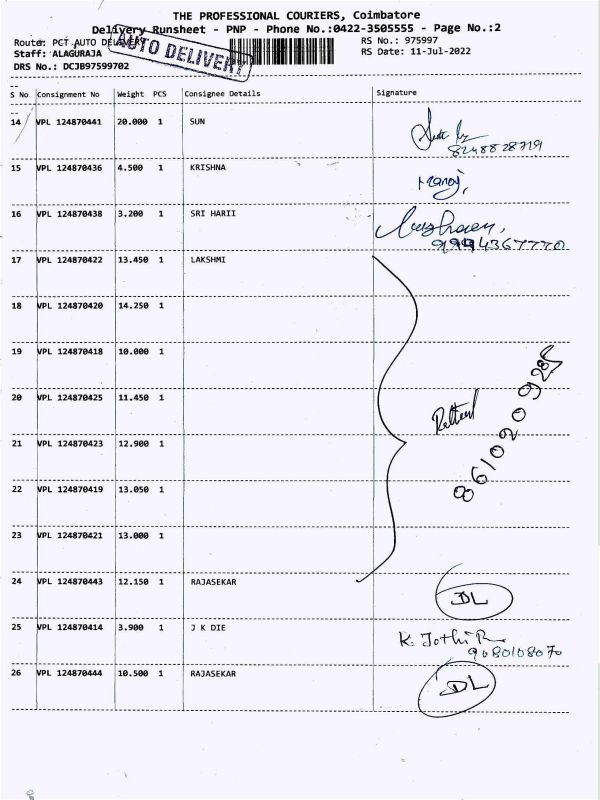 THE PROFESSIONAL COURIERS, Coimbatore
Delivery Runsheet - PNP - Phone No.:0422-3505555 - Page No.:2
Route: PCT AUTO DELIVERY
AUTO DELIVERY
RS No.: 975997
Staff: ALAGURAJA
RS Date: 11-Jul-2022
DRS No.: DCJB97599702
S No Consignment No Weight PCS Consignee Details Signature
14 VPL 124870441 20.000 1 SUN
8248828719
15 VPL 124870436 4.500 1 KRISHNA Manoj
16 VPL 124870438 3.200 1 SRI HARII
9994367770
17 VPL 124870422 13.450 1 LAKSHMI
18 VPL 124870420 14.250 1
19 VPL 124870418 10.000 1
20 VPL 124870425 11.450 1
8610209285
21 VPL 124870423 12.900 1
22 VPL 124870419 13.050 1
23 VPL 124870421 13.000 1
24 VPL 124870443 12.150 1 RAJASEKAR DL
25 VPL 124870414 3.900 1 J K DIE K. Jothi R
9080108070
26 VPL 124870444 10.500 1 RAJASEKAR DL